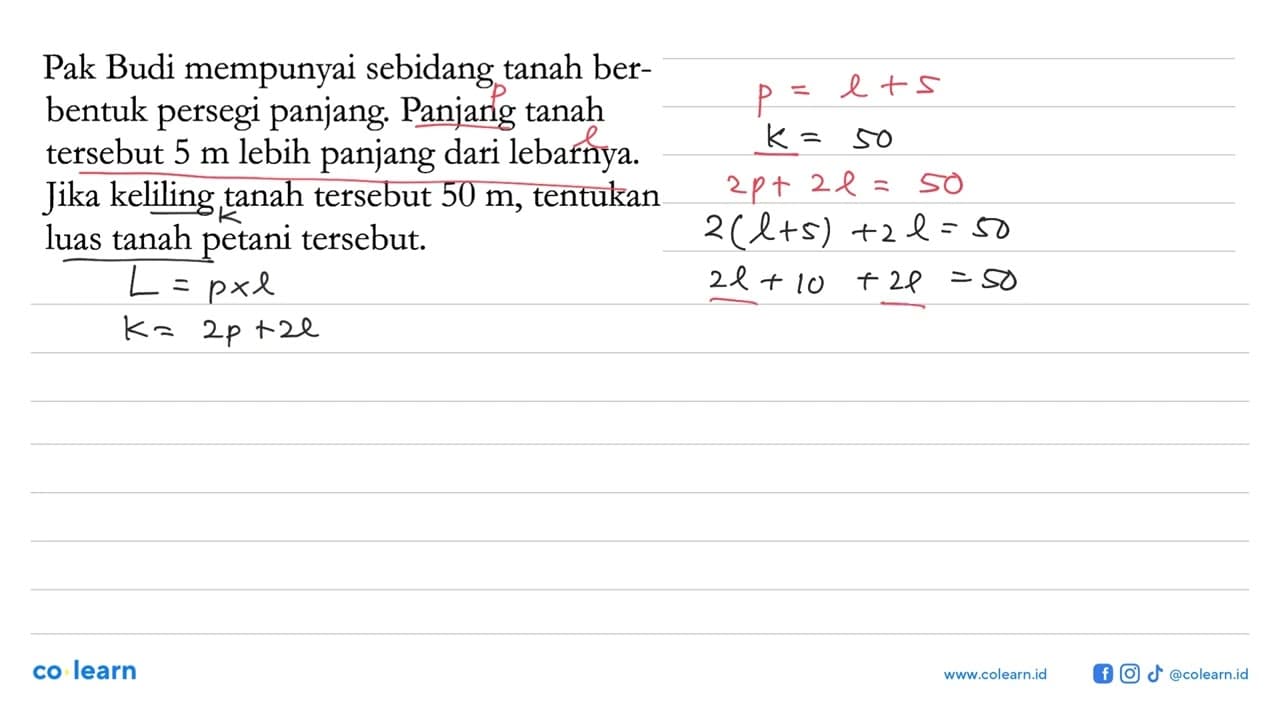 Pak Budi mempunyai sebidang tanah ber-
p
bentuk persegi panjang. Panjang tanah
l
tersebut 5 m lebih panjang dari lebarnya.
Jika keliling tanah tersebut 50 m, tentukan
K
luas tanah petani tersebut.
L = p x l
K = 2p + 2l
p = l + 5
K = 50
2p + 2l = 50
2(l+5) + 2l = 50
2l + 10 + 2l = 50
co learn
www.colearn.id
@colearn.id